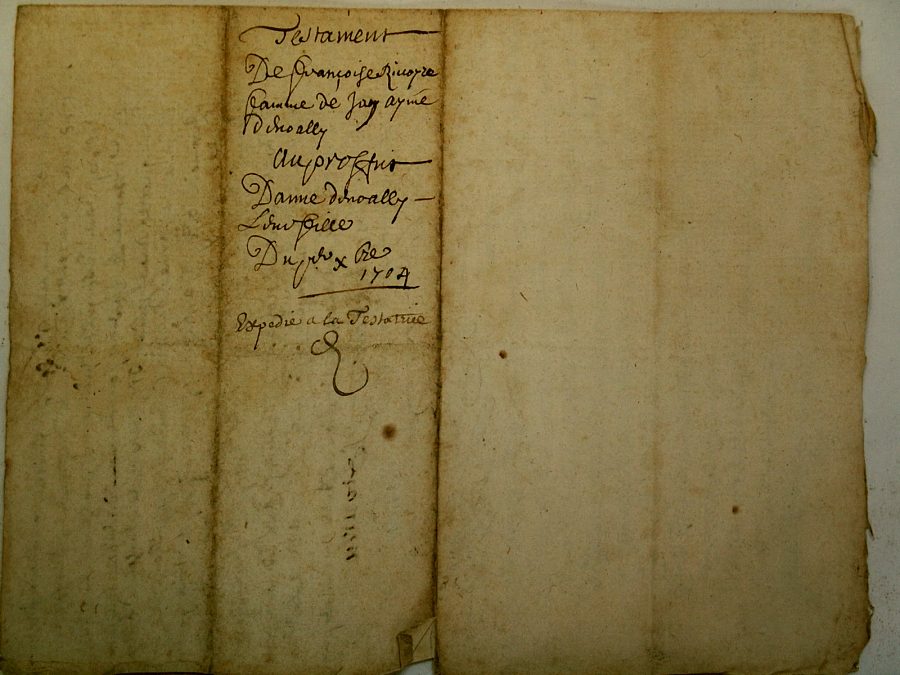 Testament
De françoise Rivoyre
famme de Jaq aymé
dinoally
Au proffit
Danne dinoally
Leur fille
Du pr xbre
1704
Expedié a la Testatrice